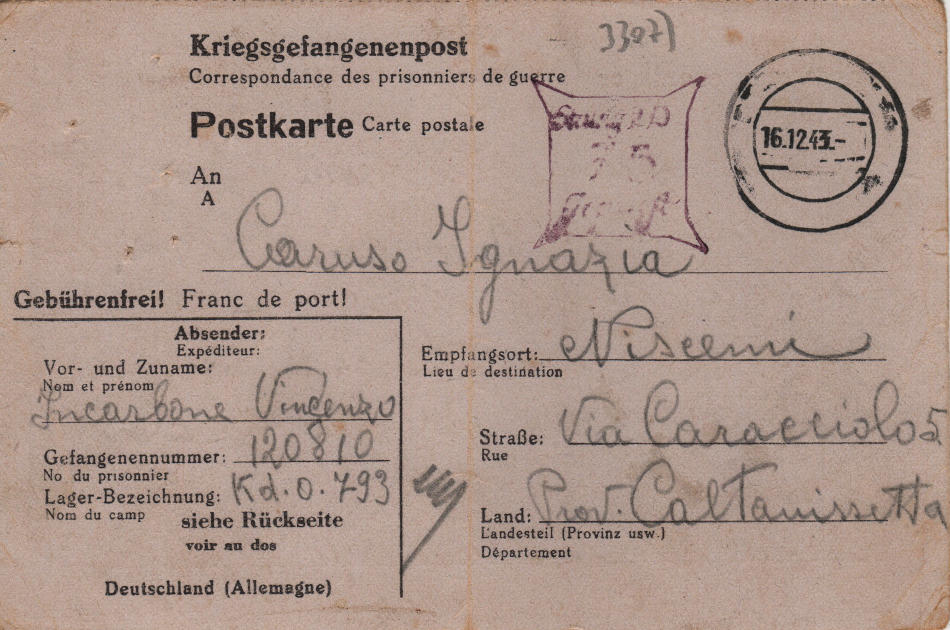 33077
Kriegsgefangenenpost
Correspondance des prisonniers de guerre
Postkarte Carte postale
16.12.43.-
An
A
Caruso Ignazia
Gebührenfrei! Franc de port!
Absender:
Expéditeur:
Vor- und Zuname:
Nom et prénom
Incarbone Vincenzo
Gefangenennummer: 120810
No du prisonnier
Lager-Bezeichnung: Kd. O. 793
Nom du camp
siehe Rückseite
voir au dos
Deutschland (Allemagne)
Empfangsort: Niscemi
Lieu de destination
Straße: Via Caracciolo 5
Rue
Land: Prov. Caltanissetta
Landesteil (Provinz usw.)
Département